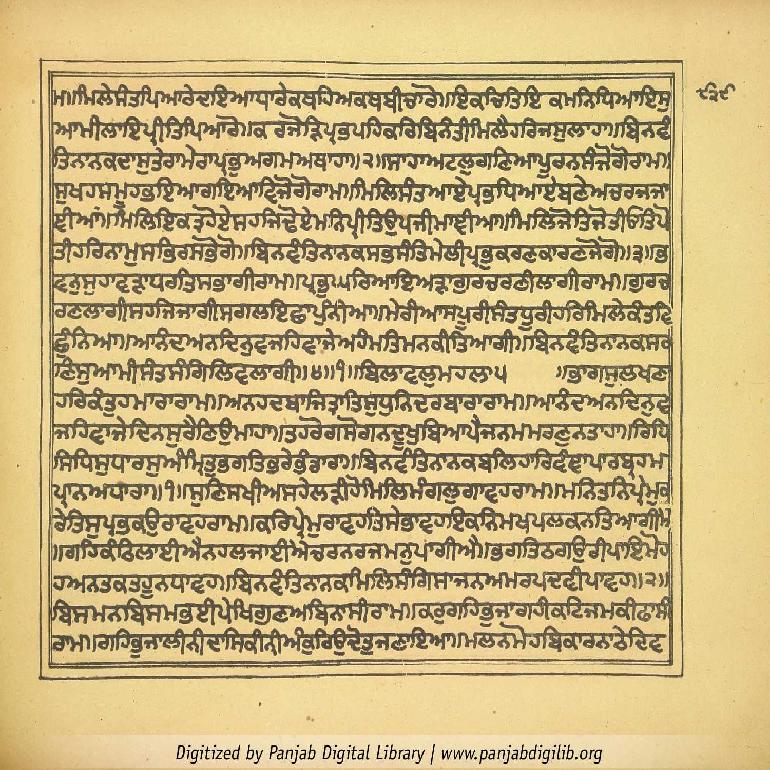 ਮ॥ਮਿਲੇਸੰਤਪਿਆਰੇਦਇਆਧਾਰੇਕਥਹਿਅਕਥਬੀਚਾਰੋ॥ਇਕਚਿਤਿਇ ਕਮਨਿਧਿਆਇਸੁ
੮੩੯
ਆਮੀਲਾਇਪ੍ਰੀਤਿਪਿਆਰੋ॥ਕ ਰਜੋੜਿਪ੍ਰਭਪਹਿਕਰਿਬਿਨੰਤੀਮਿਲੈਹਰਿਜਸੁਲਾਹਾ॥ਬਿਨਵੰ
ਤਿਨਾਨਕਦਾਸੁਤੇਰਾਮੇਰਾਪ੍ਰਭੁਅਗਮਅਥਾਹਾ॥੨॥ਸਾਹਾਅਟਲੁਗਣਿਆਪੂਰਨਸੰਜੋਗੋਰਾਮ॥
ਸੁਖਹਸਮੂਹਭਇਆਗਇਆਵਿਜੋਗੋਰਾਮ॥ਮਿਲਿਸੰਤਆਏਪ੍ਰਭਧਿਆਏਬਣੇਅਚਰਜਜਾ
ਞੀਆਂ॥ਮਿਲਿਇਕਤ੍ਰਹੋਏਸਹਜਿਢੋਏਮਨਿਪ੍ਰੀਤਿਉਪਜੀਮਾਞੀਆ॥ਮਿਲਿਜੋਤਿਜੋਤੀਓਤਿਪੋ
ਤੀਹਰਿਨਾਮੁਸਭਿਰਸਭੋਗੋ॥ਬਿਨਵੰਤਿਨਾਨਕਸਭਸੰਤਿਮੇਲੀਪ੍ਰਭੁਕਰਣਕਾਰਣਜੋਗੋ॥੩॥ਭ
ਵਨੁਸੁਹਾਵੜਾਧਰਤਿਸਭਾਗੀਰਾਮ॥ਪ੍ਰਭੁਘਰਿਆਇਅੜਾਗੁਰਚਰਣੀਲਾਗੀਰਾਮ॥ਗੁਰਚ
ਰਣਲਾਗੀਸਹਜਿਜਾਗੀਸਗਲਇਛਾਪੁੰਨੀਆ॥ਮੇਰੀਆਸਪੂਰੀਸੰਤਧੂਰੀਹਰਿਮਿਲੇਕੰਤਵਿ
ਛੁੰਨਿਆ॥ਆਨੰਦਅਨਦਿਨੁਵਜਹਿਵਾਜੇਅਹੰਮਤਿਮਨਕੀਤਿਆਗੀ॥ਬਿਨਵੰਤਿਨਾਨਕਸਰ
ਣਿਸੁਆਮੀਸੰਤਸੰਗਿਲਿਵਲਾਗੀ॥੪॥੧॥ਬਿਲਾਵਲੁਮਹਲਾ੫ ॥ਭਾਗਸੁਲਖਣਾ
ਹਰਿਕੰਤੁਹਮਾਰਾਰਾਮ॥ਅਨਹਦਬਾਜਿਤ੍ਰਾਤਿਸੁਧੁਨਿਦਰਬਾਰਾਰਾਮ॥ਆਨੰਦਅਨਦਿਨੁਵ
ਜਹਿਵਾਜੇਦਿਨਸੁਰੈਣਿਉਮਾਹਾ॥ਤਹਰੋਗਸੋਗਨਦੂਖੁਬਿਆਪੈਜਨਮਮਰਣੁਨਤਾਹਾ॥ਰਿਧਿ
ਸਿਧਿਸੁਧਾਰਸੁਅੰਮ੍ਰਿਤੁਭਗਤਿਭਰੇਭੰਡਾਰਾ॥ਬਿਨਵੰਤਿਨਾਨਕਬਲਿਹਾਰਿਵੰਞਾਪਾਰਬ੍ਰਹਮ
ਪ੍ਰਾਨਅਧਾਰਾ॥੧॥ਸੁਣਿਸਖੀਅਸਹੇਲੜੀਹੋਮਿਲਿਮੰਗਲੁਗਾਵਹਰਾਮ॥ਮਨਿਤਨਿਪ੍ਰੇਮੁਕ
ਰੇਤਿਸੁਪ੍ਰਭਕਉਰਾਵਹਰਾਮ॥ਕਰਿਪ੍ਰੇਮੁਰਾਵਹਤਿਸੈਭਾਵਹਇਕਨਿਮਖਪਲਕਨਤਿਆਗੀਐ
॥ਗਹਿਕੰਠਿਲਾਈਐਨਹਲਜਾਈਐਚਰਨਰਜਮਨੁਪਾਗੀਐ॥ਭਗਤਿਠਗਉਰੀਪਾਇਮੋਹ
ਹਅਨਤਕਤਹੂਨਧਾਵਹ॥ਬਿਨਵੰਤਿਨਾਨਕਮਿਲਿਸੰਗਿਸਾਜਨਅਮਰਪਦਵੀਪਾਵਹ॥੨॥
ਬਿਸਮਨਬਿਸਮਭਈਪੇਖਿਗੁਣਅਬਿਨਾਸੀਰਾਮ॥ਕਰੁਗਹਿਭੁਜਾਗਹੀਕਟਿਜਮਕੀਫਾਸੀ
ਰਾਮ॥ਗਹਿਭੁਜਾਲੀਨੀਦਾਸਿਕੀਨੀਅੰਕੁਰਿਉਦੋਤੁਜਣਾਇਆ॥ਮਲਨਮੋਹਬਿਕਾਰਨਾਠੇਦਿਵ
Digitized by Panjab Digital Library | www.panjabdigilib.org